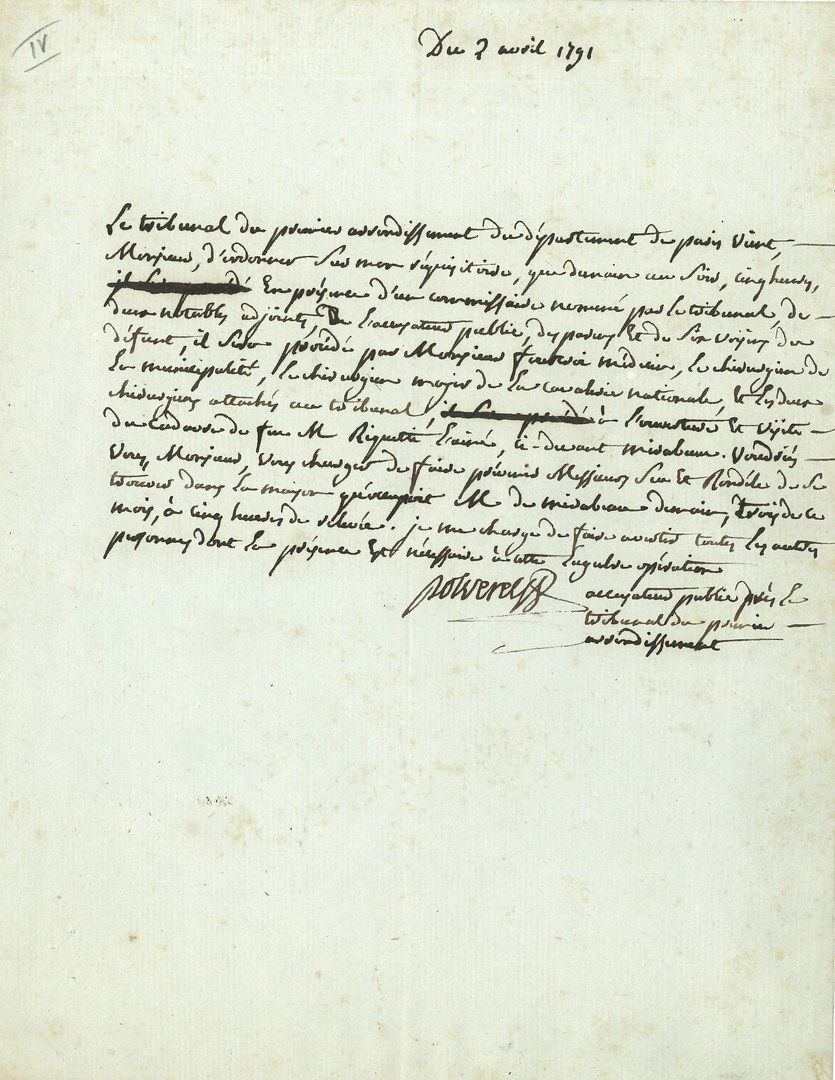 IV
Du 2 avril 1791
Le tribunal du premier arrondissement du département de paris vient,
Monsieur, d'ordonner sur mon réquisitoire, que demain au soir, cinq heures,
il sera procédé En présence d'un commissaire nommé par le tribunal, de
deux notables adjoints, De l'accusateur public, des parens Et de six voisins du
défunt, il sera procédé par Monsieur fourcroi médecin, le chirurgien de
la municipalité, le chirurgien major de la cavalerie nationale, et les deux
chirurgiens attachés au tribunal, il sera procédé à l'ouverture Et visite
du Cadavre de feu M Riquetti l'ainé, ci-devant mirabeau. Voudriés
Vous, Monsieur, vous charger de faire prévenir Messieurs Sue et de se
trouver dans la maison qu'occupoit M. de mirabeau demain, trois de ce
mois, à cinq heures de relevée. je me charge de faire avertir toutes les autres
personnes dont la présence Est nécessaire à cette lugubre opération
polverel
accusateur public près le
tribunal du premier
arrondissement